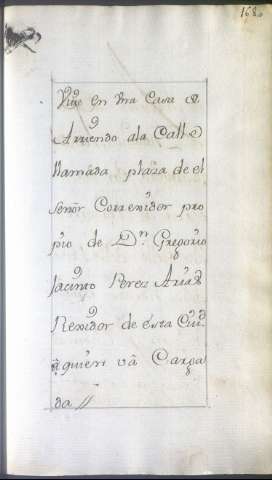 1680
Vive en vna Casa de
Arriendo ala Calle
llamada plaza de el
señor Correxidor pro
pio de Dn. Gregorio
Jacinto Perez Arias
Rexidor de esta Ciud.
à quien và Carga
da //